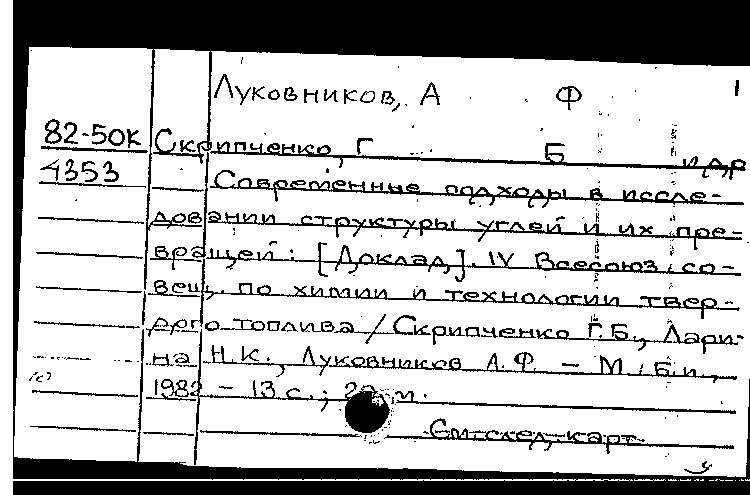 Луковников, А Ф 1
82-50К Скрипченко, Г Б и др
4353 Современные подходы в иссле-
довании структуры углей и их пре-
вращей: [Доклад]. IV Всесоюз. со-
вещ. по химии и технологии твер-
дого топлива / Скрипченко Г.Б., Лари-
на Н.К., Луковников А.Ф. – М. Б.и.,
1982 – 13 с.;
См. след. карт